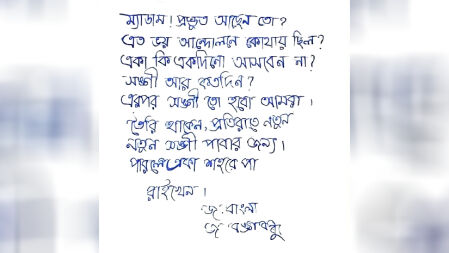 ম্যাডাম! প্রস্তুত আছেন তো?
এত ভয় আন্দোলনে কোথায় ছিল?
একা কি একদিনো আসবেন না?
সঙ্গী আর কতদিন?
এরপর সঙ্গী তো হবো আমরা।
তৈরি থাকেন, প্রতিরাতে নতুন
নতুন সঙ্গী পাবার জন্য।
পারলে একা শহরে পা
রাইখেন।
জয় বাংলা
জয় বঙ্গবন্ধু